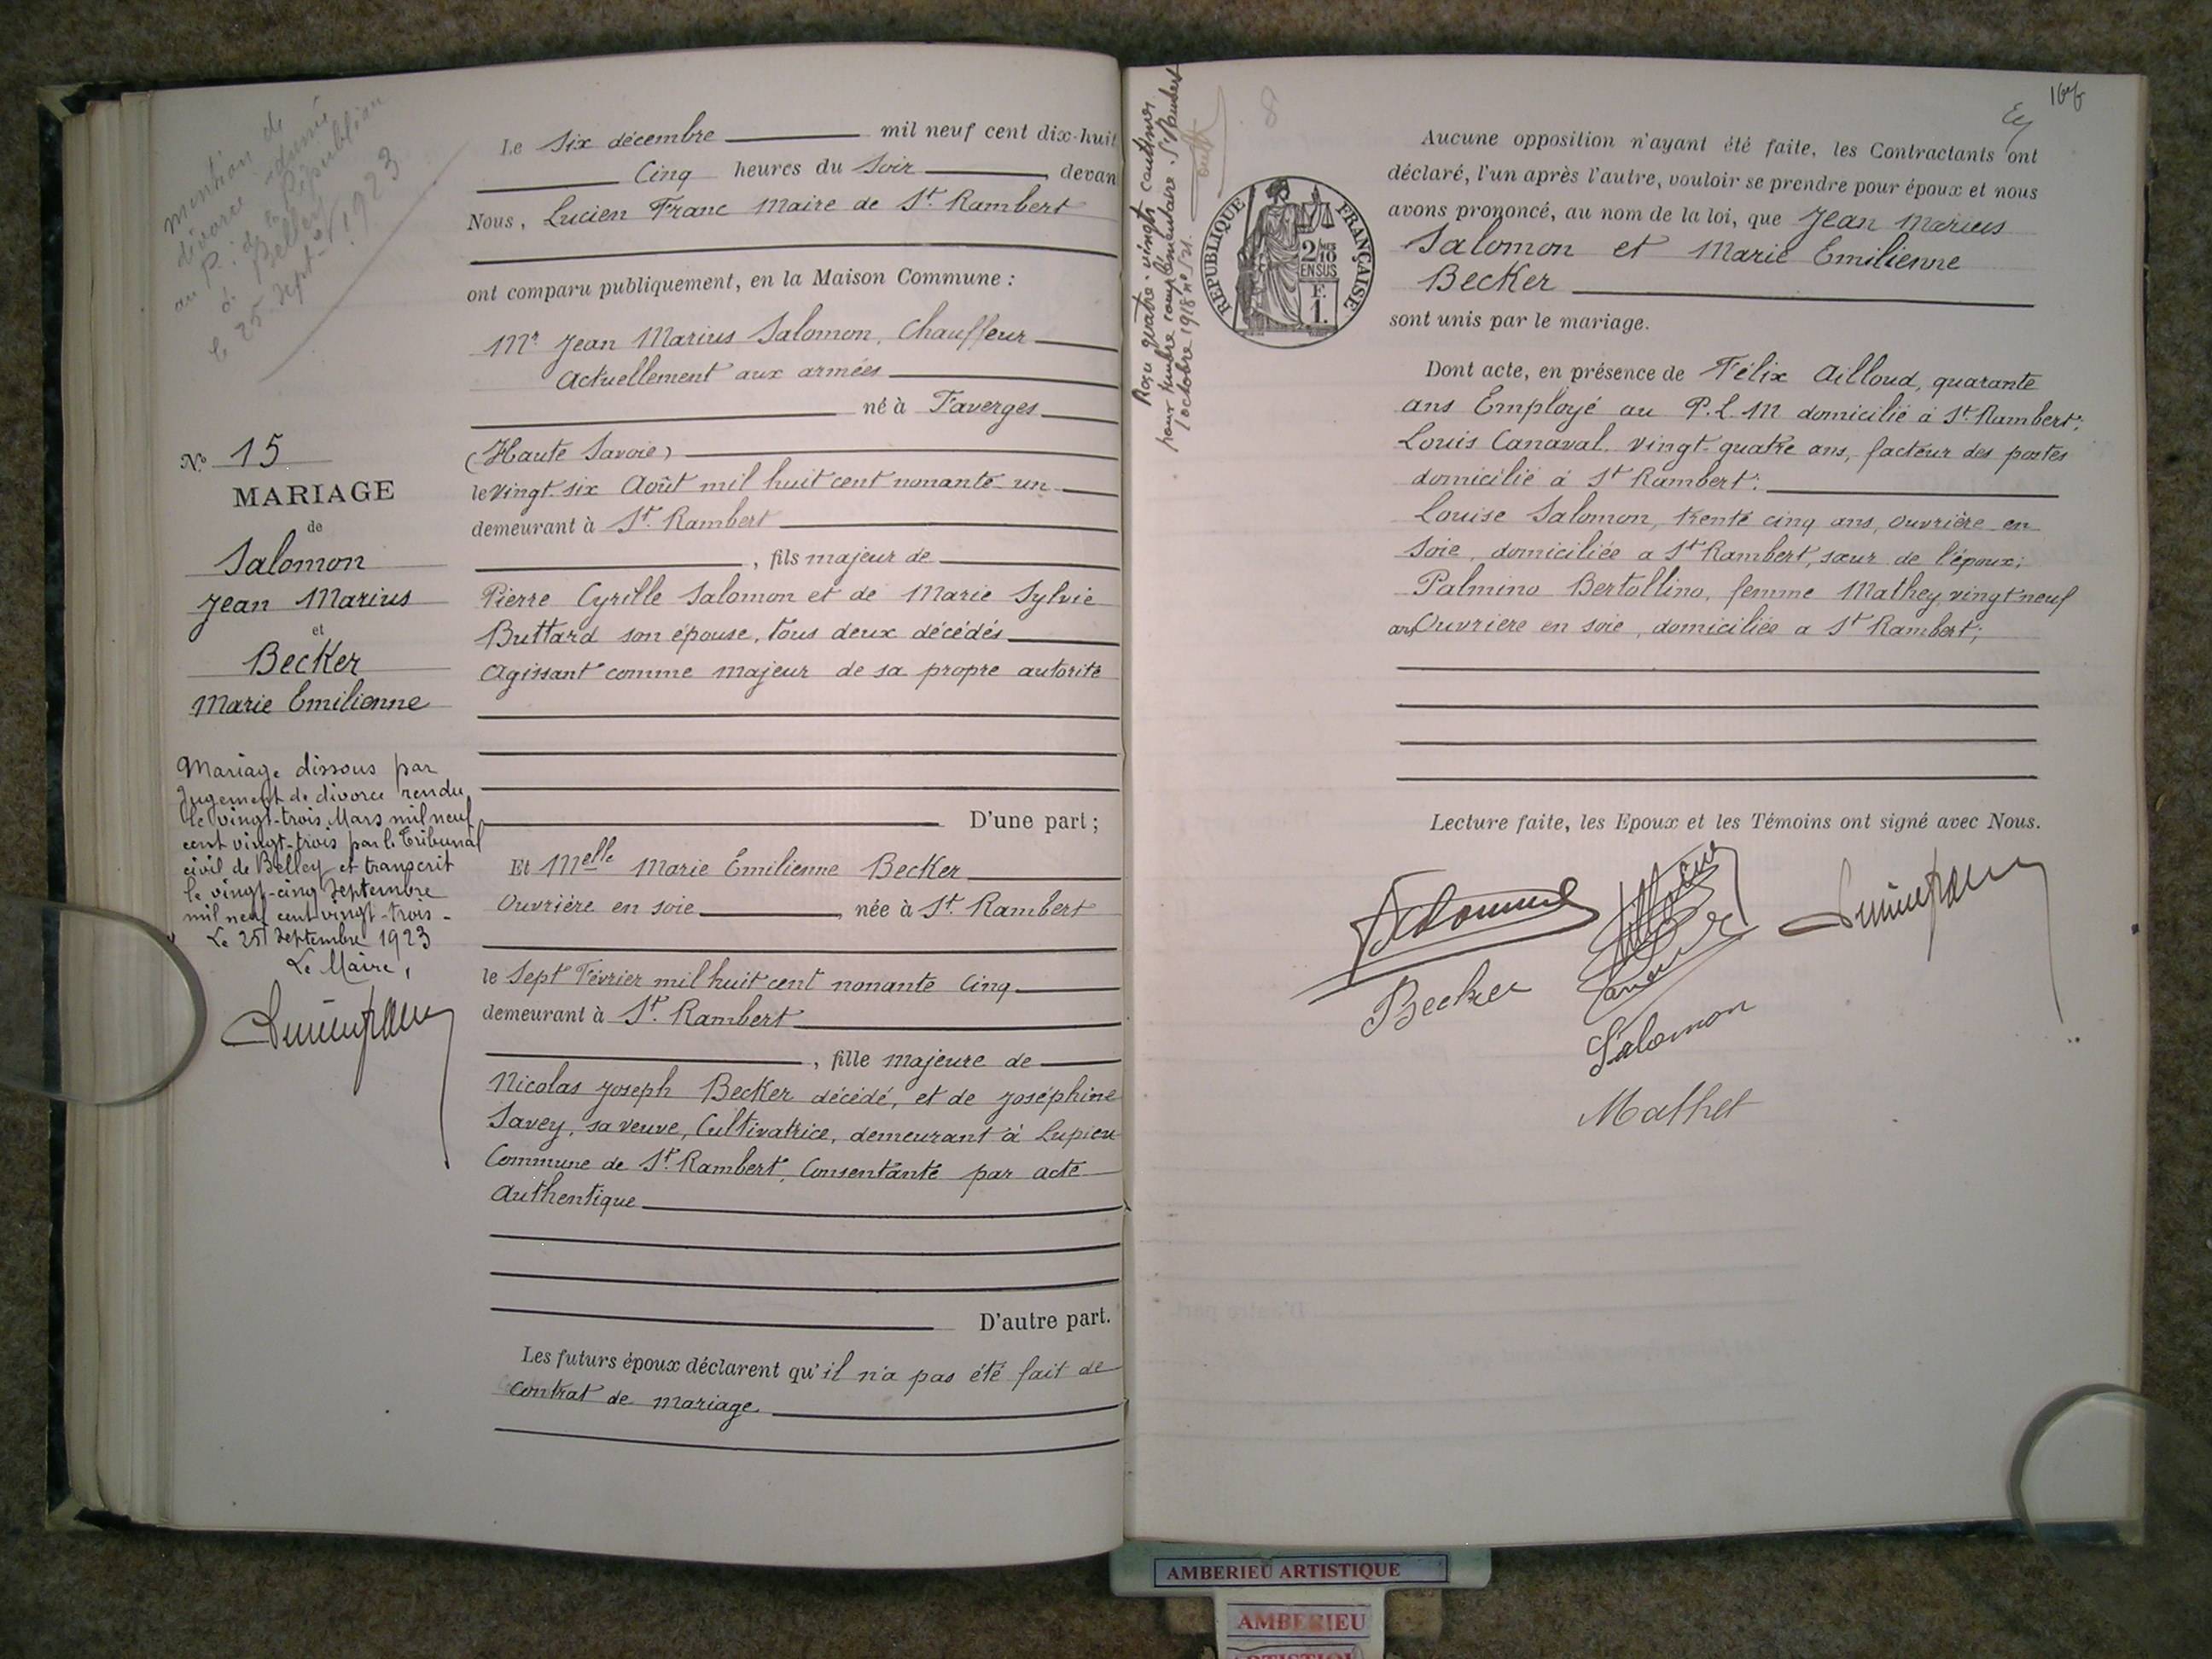 mention de
divorce adressée
au P. de la République
de Belley
le 25 Sept. 1923
N° 15
MARIAGE
de
Salomon
Jean Marius
et
Becker
Marie Emilienne
Mariage dissous par
Jugement de divorce rendu
le vingt-trois Mars mil neuf
cent vingt-trois par le Tribunal
civil de Belley et transcrit
le vingt-cinq Septembre
mil neuf cent vingt-trois -
Le 25 Septembre 1923
Le Maire,
Le Six décembre mil neuf cent dix-huit
Cinq heures du Soir, devan
Nous, Lucien Franc Maire de St. Rambert
ont comparu publiquement, en la Maison Commune :
Mr. Jean Marius Salomon, Chauffeur
Actuellement aux armées
né à Faverges
(Haute Savoie)
le vingt-six Août mil huit cent nonante-un
demeurant à St. Rambert
, fils majeur de
Pierre Cyrille Salomon et de Marie Sylvie
Buttard son épouse, tous deux décédés
Agissant comme majeur de sa propre autorité
D'une part ;
Et Melle Marie Emilienne Becker
Ouvrière en soie, née à St. Rambert
le Sept Février mil huit cent nonante Cinq
demeurant à St. Rambert
, fille majeure de
Nicolas Joseph Becker décédé, et de Joséphine
Savey, sa veuve, Cultivatrice, demeurant à Lupieu
Commune de St. Rambert, Consentante par acte
Authentique
D'autre part.
Les futurs époux déclarent qu'il n'a pas été fait de
contrat de mariage
Reçu quatre-vingts centimes
pour timbre complémentaire. St Rambert
octobre 1918 n°
RÉPUBLIQUE FRANÇAISE
2/10
EN SUS
F.
1.
Aucune opposition n'ayant été faite, les Contractants ont
déclaré, l'un après l'autre, vouloir se prendre pour époux et nous
avons prononcé, au nom de la loi, que Jean Marius
Salomon et Marie Emilienne
Becker
sont unis par le mariage.
Dont acte, en présence de Félix Ailloud, quarante
ans Employé au P.L.M domicilié à St. Rambert;
Louis Canaval, vingt-quatre ans, facteur des postes
domicilié à St Rambert;
Louise Salomon, trente cinq ans, ouvrière en
Soie, domiciliée a St Rambert, sœur de l'époux;
Palmino Bertollino, femme Mathey, vingt neuf
ans Ouvriere en soie, domiciliée a St Rambert;
Lecture faite, les Epoux et les Témoins ont signé avec Nous.
Becker
Salomon
Mathet
AMBERIEU ARTISTIQUE
AMBERIEU
ARTISTIQU